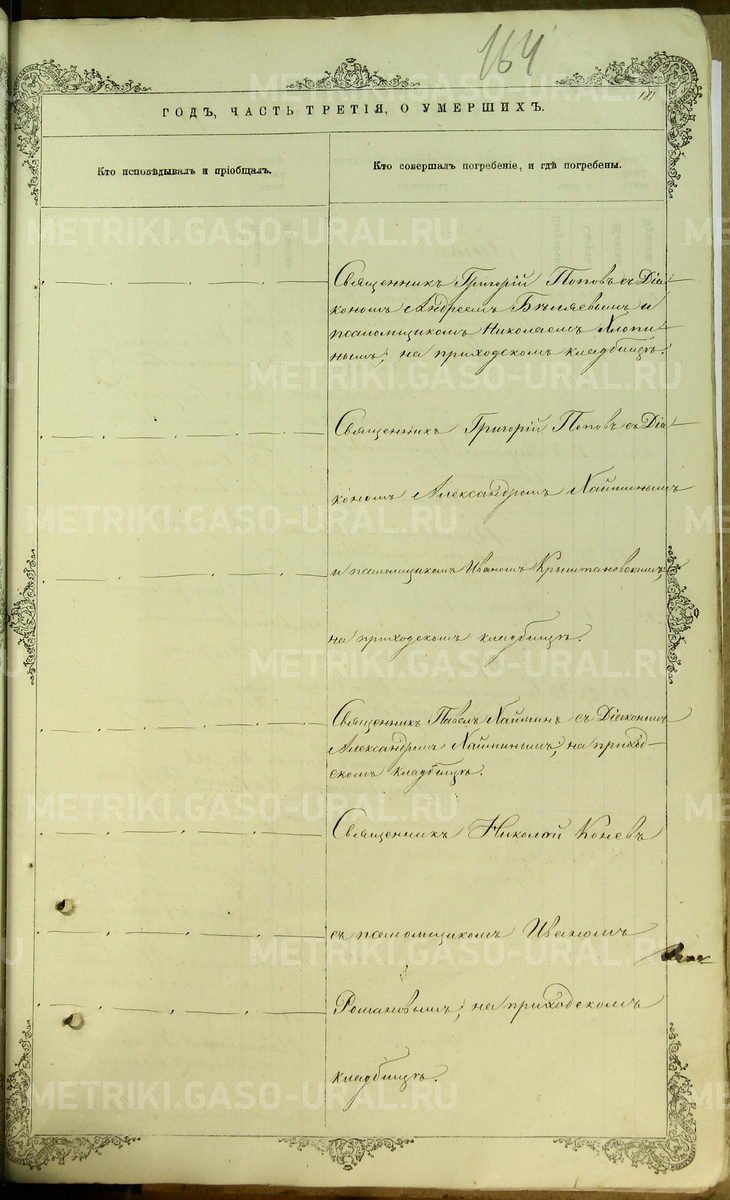 164
181
ГОДЪ, ЧАСТЬ ТРЕТІЯ, О УМЕРШИХЪ.
Кто исповѣдывалъ и пріобщалъ.
Кто совершалъ погребеніе, и гдѣ погребены.
Священникъ Григорій Поповъ съ Діа-
кономъ Андреемъ Бѣляевымъ и
псаломщикомъ Николаемъ Хлопи-
нымъ, на приходскомъ кладбищѣ.
Священникъ Григорій Поповъ съ Діа-
кономъ Александромъ Хайминымъ
и псаломщикомъ Иваномъ Крыштановскимъ
на приходскомъ кладбищѣ.
Священникъ Павелъ Хайминъ съ Діакономъ
Александромъ Хайминымъ, на приход-
скомъ кладбищѣ.
Священникъ Николай Коневъ
съ псаломщикомъ Иваномъ
Романовымъ, на приходскомъ
кладбищѣ.
METRIKI.GASO-URAL.RU